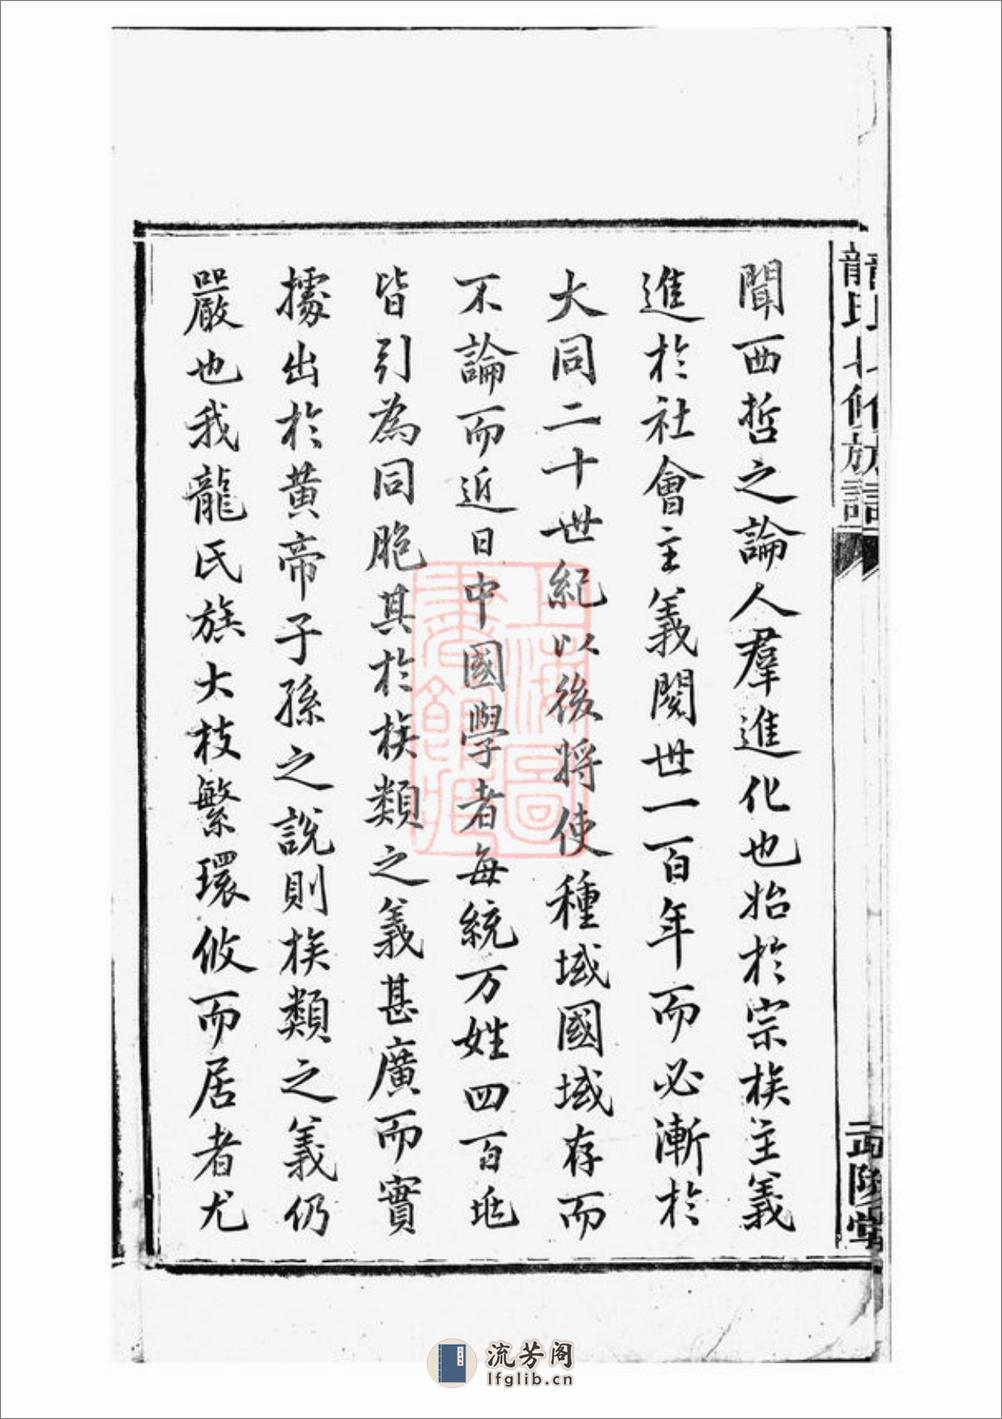 龍氏七修族譜
聞西哲之論人羣進化也始於宗族主義
進於社會主義閱世一百年而必漸於
大同二十世紀以後將使種域國域存而
不論而近日中國學者每統万姓四百兆
皆引為同胞其於族類之義甚廣而實
據出於黄帝子孫之說則族類之義仍
嚴也我龍氏族大枝繁環攸而居者尤
上海圖
書館藏
流芳阁
lfglib.cn